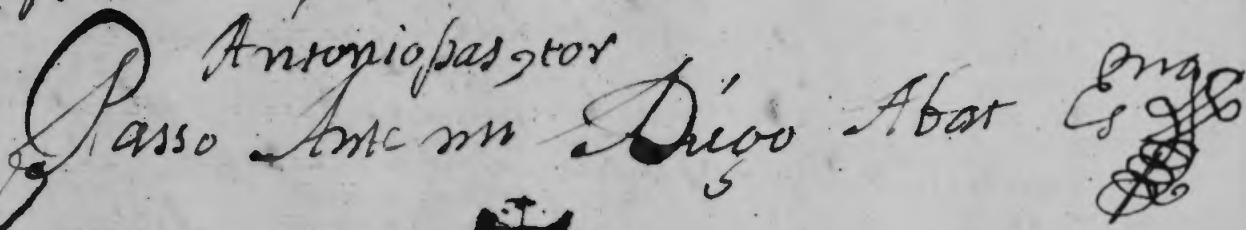 Antonio pastor
Passo Ante mi Diego Abat